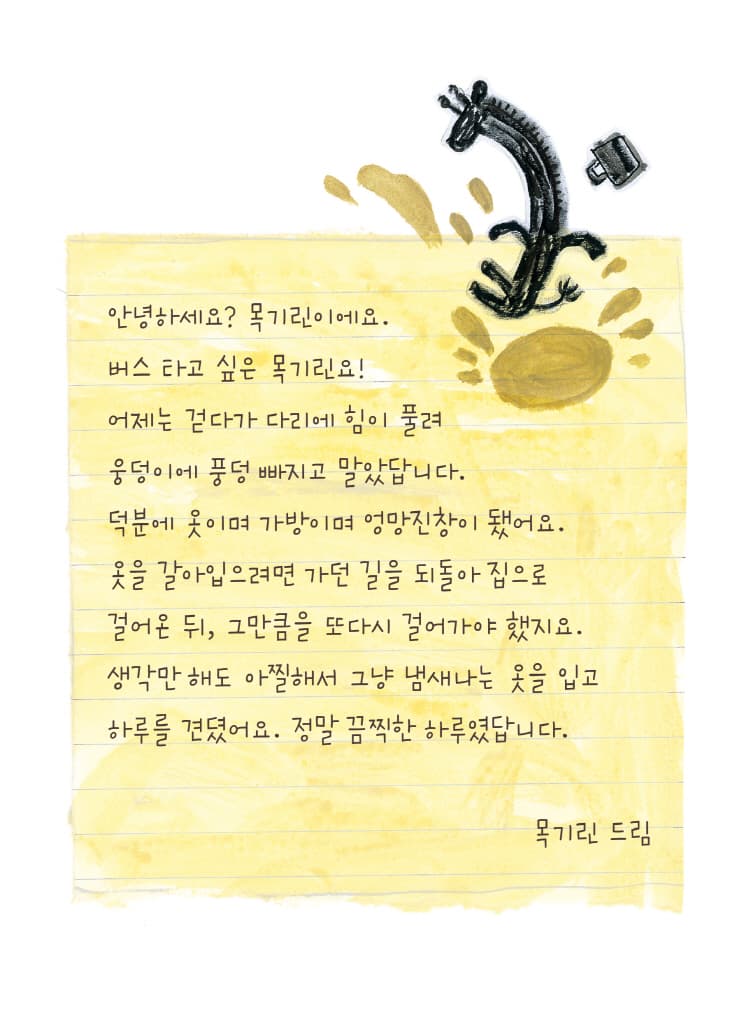 안녕하세요? 목기린이에요.
버스 타고 싶은 목기린요!
어제는 걷다가 다리에 힘이 풀려
웅덩이에 풍덩 빠지고 말았답니다.
덕분에 옷이며 가방이며 엉망진창이 됐어요.
옷을 갈아입으려면 가던 길을 되돌아 집으로
걸어온 뒤, 그만큼을 또다시 걸어가야 했지요.
생각만 해도 아찔해서 그냥 냄새나는 옷을 입고
하루를 견뎠어요. 정말 끔찍한 하루였답니다.
목기린 드림